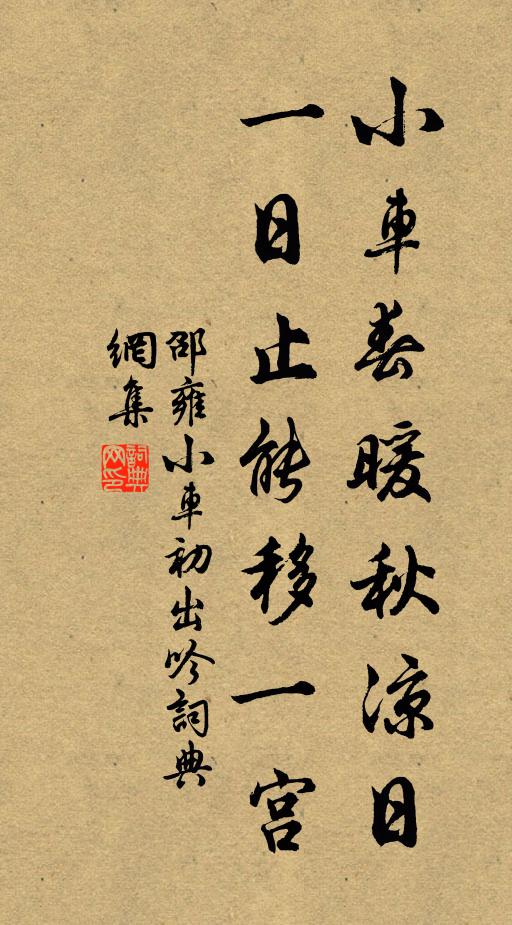 小車春暖秋涼日
一日止能移一宮
邵雍小車初出吟詞典
網集
詞典網印